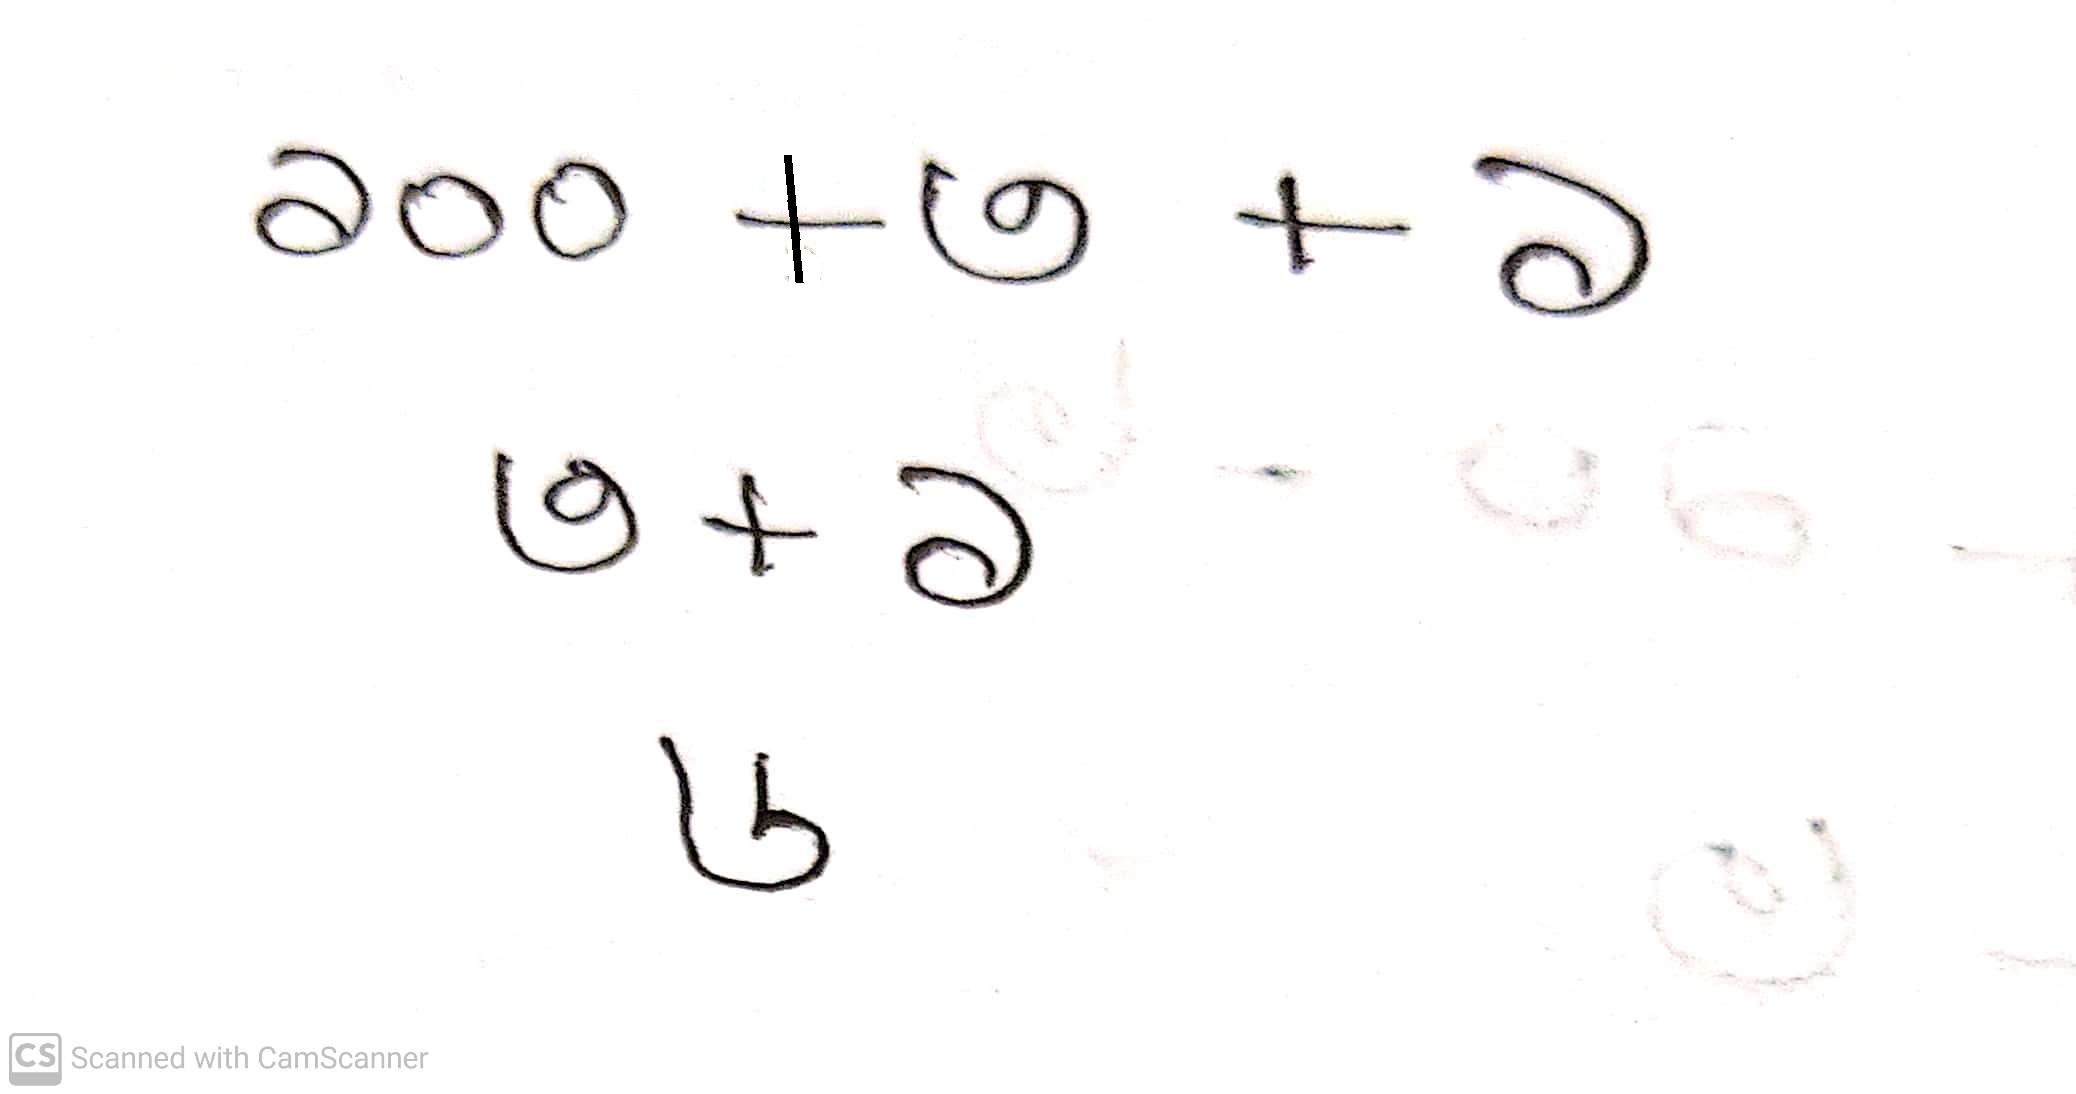 ১০০ + ৩ + ১
৩ + ১
৮
CS Scanned with CamScanner